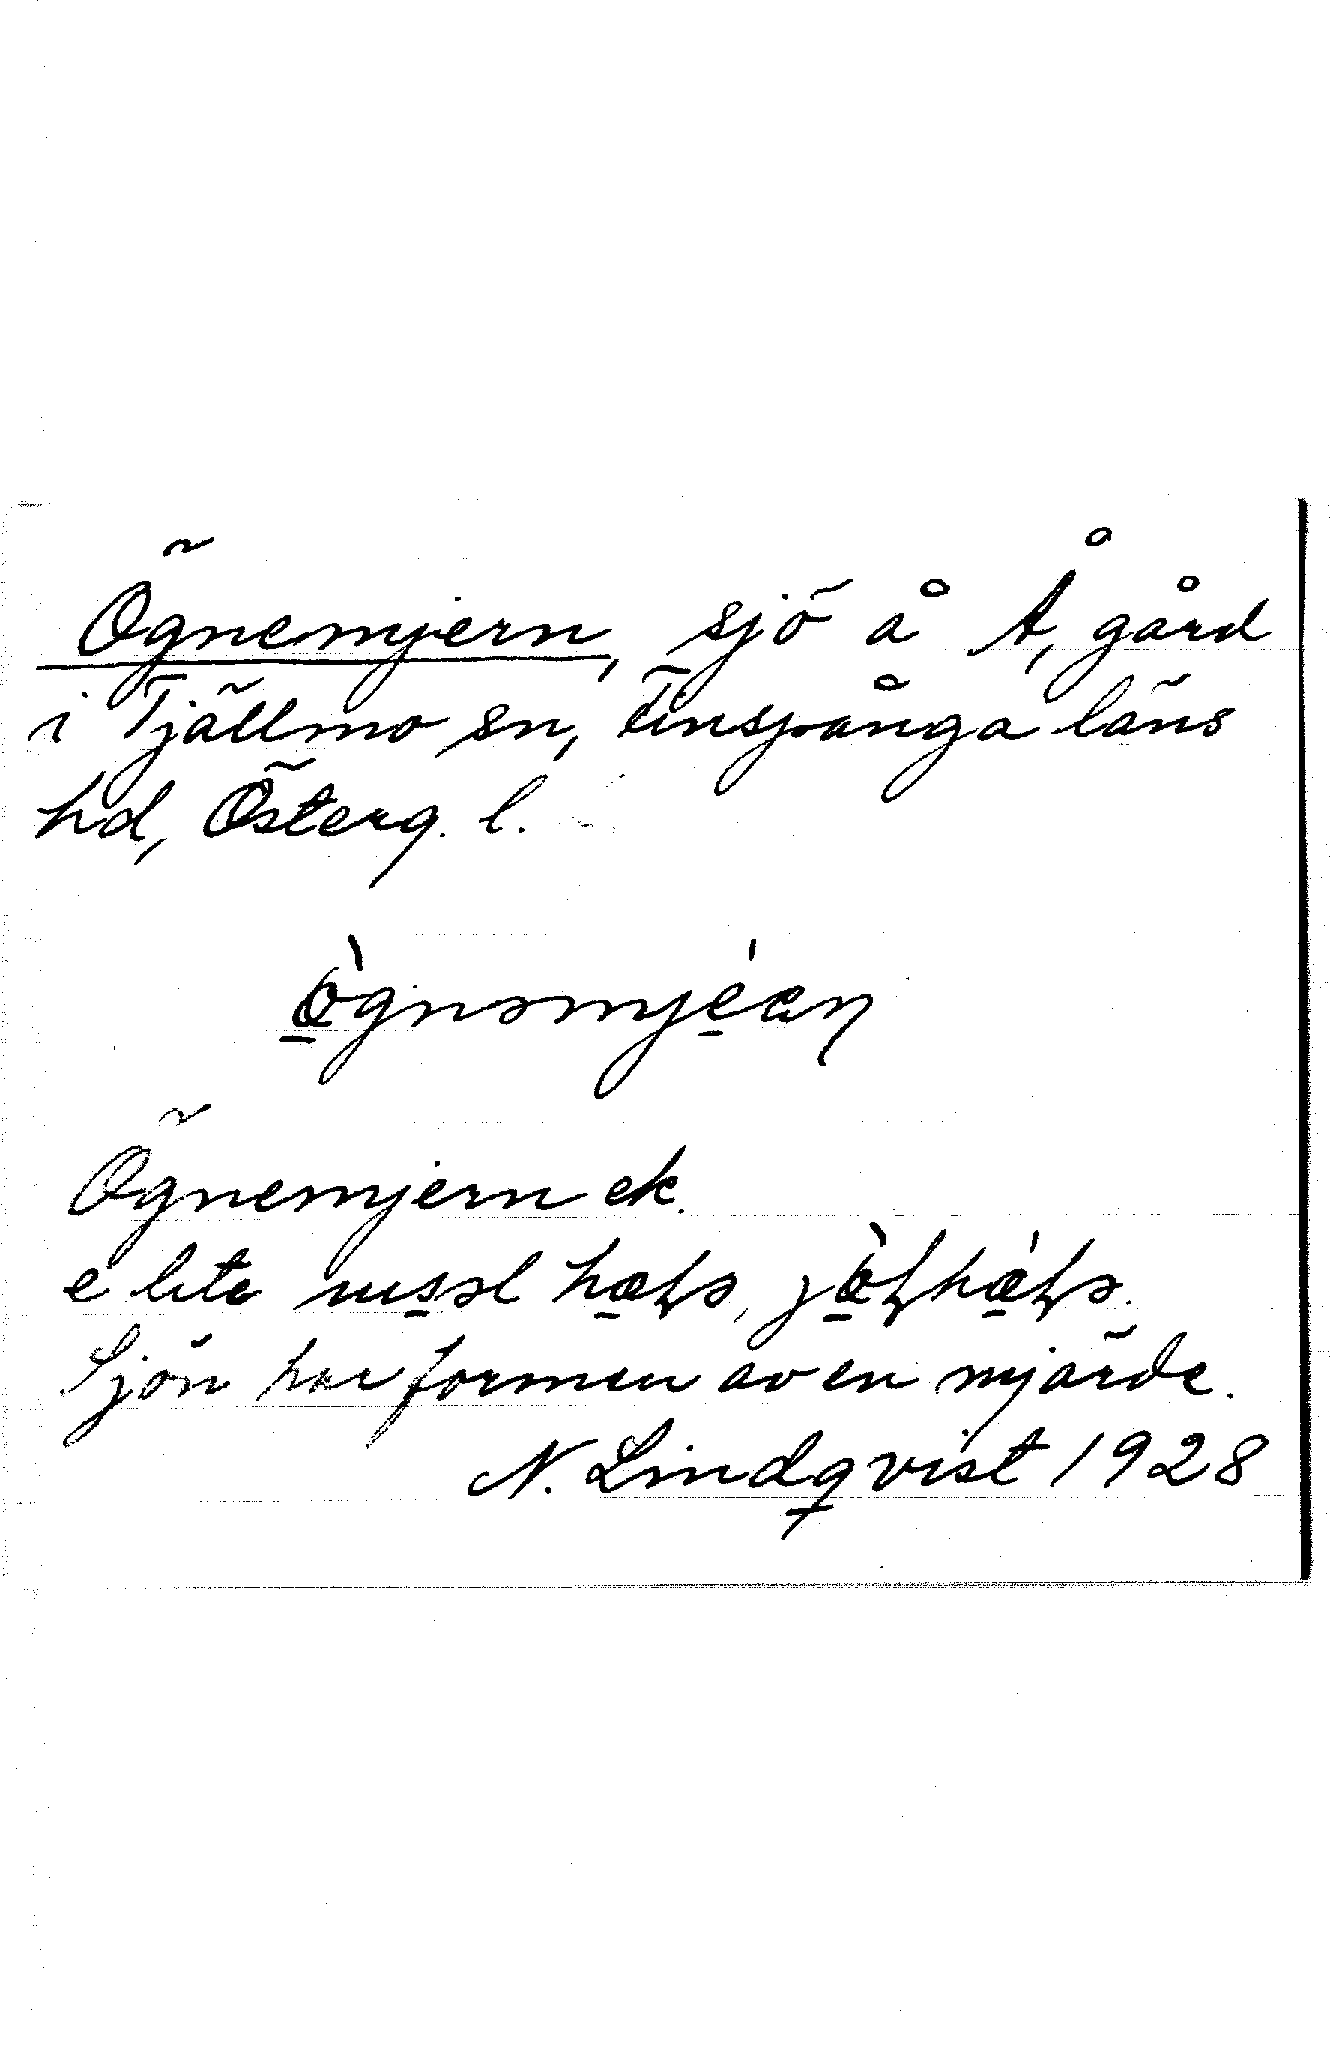 Ögnemjern, sjö å Å, gård
i Tjällmo sn, Finspånga läns
hd, Österg. l.
ö̀gnəmjéæṇ
Ögnemjern ek.
e lita
Sjön har formen av en mjärde.
N. Lindqvist 1928